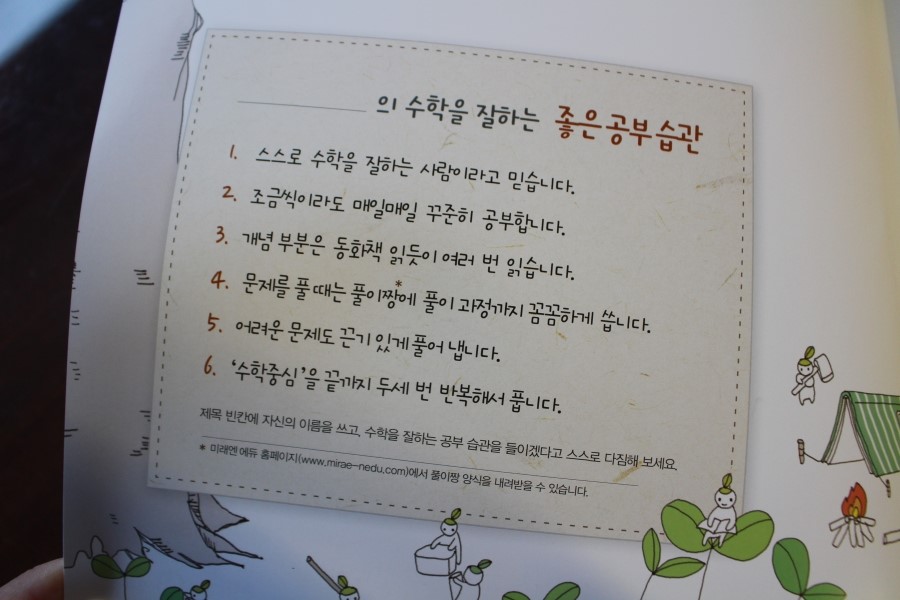 의 수학을 잘하는 좋은 공부 습관
1. 스스로 수학을 잘하는 사람이라고 믿습니다.
2. 조금씩이라도 매일매일 꾸준히 공부합니다.
3. 개념 부분은 동화책 읽듯이 여러 번 읽습니다.
4. 문제를 풀 때는 풀이짱*에 풀이 과정까지 꼼꼼하게 씁니다.
5. 어려운 문제도 끈기 있게 풀어 냅니다.
6. ‘수학중심’을 끝까지 두세 번 반복해서 풉니다.
제목 빈칸에 자신의 이름을 쓰고, 수학을 잘하는 공부 습관을 들이겠다고 스스로 다짐해 보세요.
* 미래엔 에듀 홈페이지(www.mirae-nedu.com)에서 풀이짱 양식을 내려받을 수 있습니다.